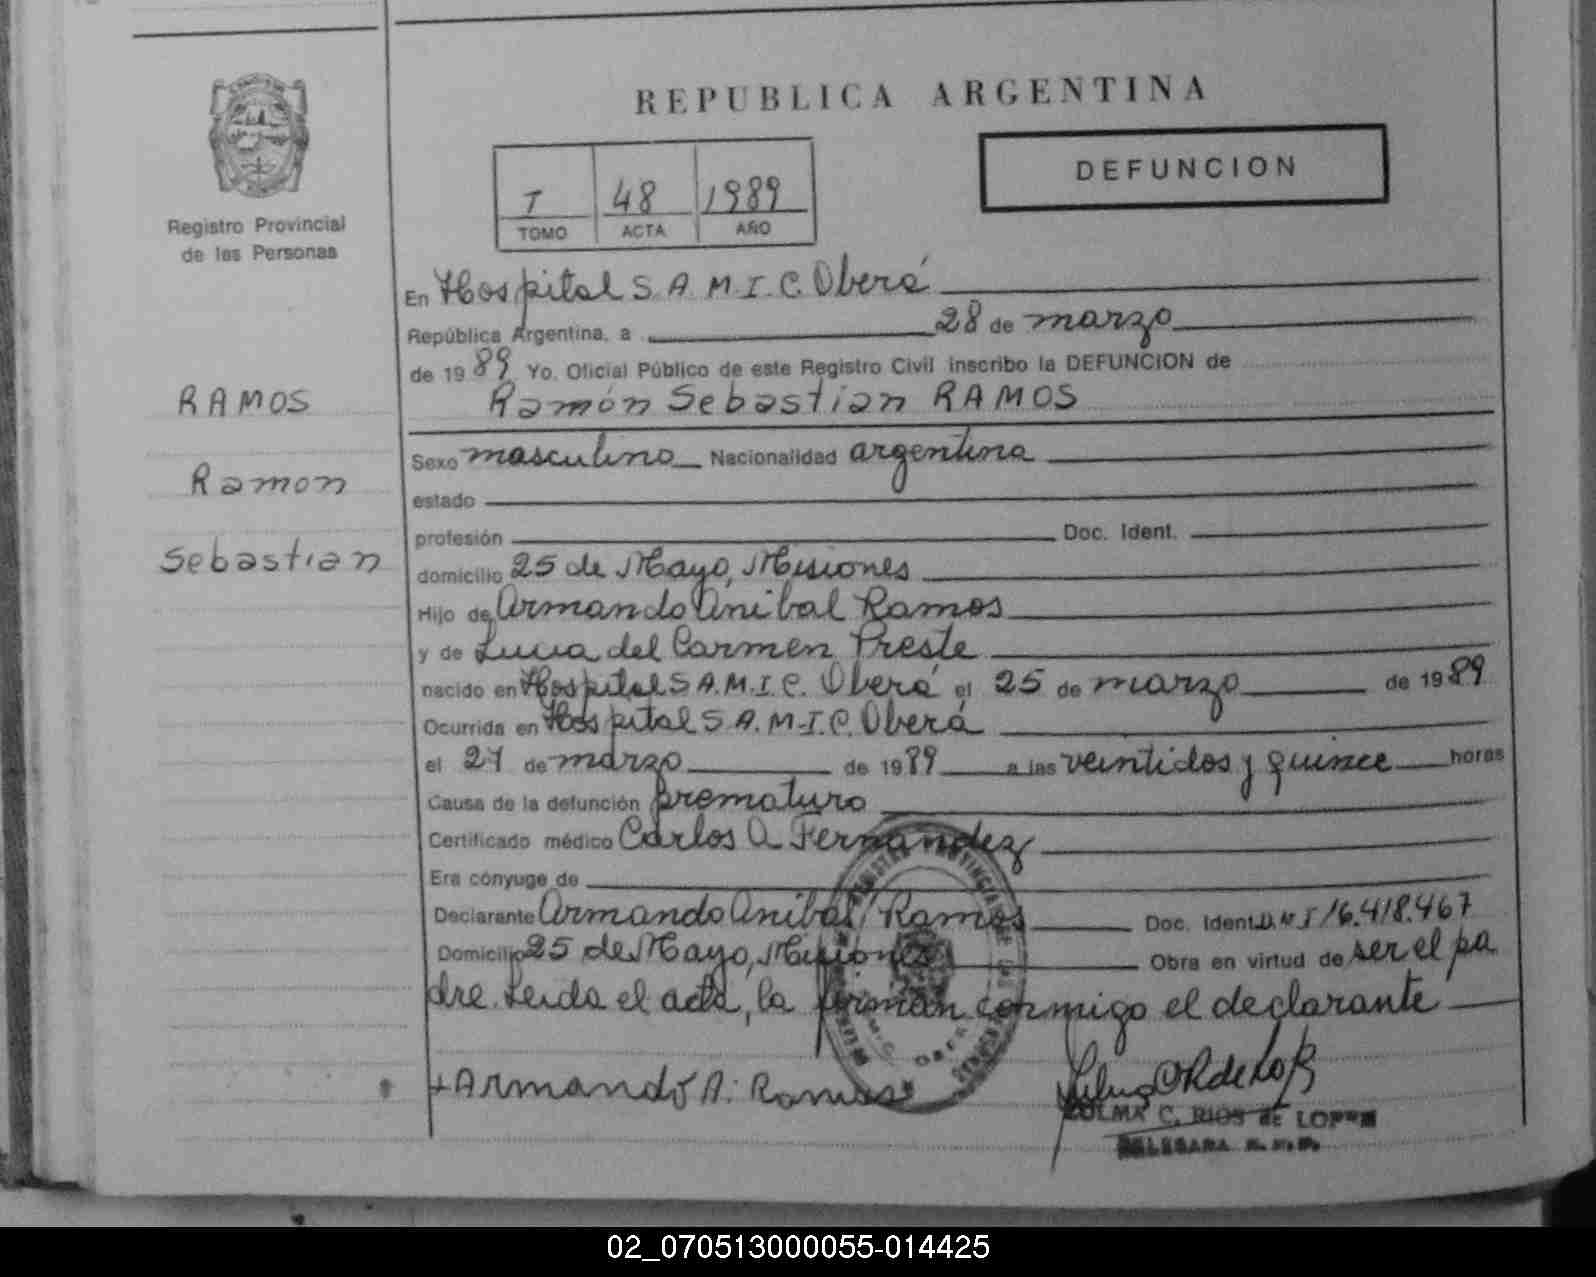 REPUBLICA ARGENTINA
DEFUNCION
T 48 1989
TOMO ACTA AÑO
Registro Provincial
de las Personas
En Hospital S.A.M.I.C. Oberá
República Argentina, a 28 de marzo
de 1989 Yo, Oficial Público de este Registro Civil inscribo la DEFUNCION de
Ramón Sebastian RAMOS
RAMOS
Ramon
Sebastian
Sexo masculino Nacionalidad argentina
estado
profesión Doc. Ident.
domicilio 25 de Mayo, Misiones
Hijo de Armando Anibal Ramos
y de Lucia del Carmen Preste
nacido en Hospital S.A.M.I.C. Oberá el 25 de marzo de 1989
Ocurrida en Hospital S.A.M.I.C. Oberá
el 27 de marzo de 1989 a las veintidos y quince horas
Causa de la defunción prematuro
Certificado médico Carlos A. Fernandez
Era cónyuge de
Declarante Armando Anibal Ramos Doc. Ident. D.N.I 16.418.467
Domicilio 25 de Mayo, Misiones Obra en virtud de ser el pa
dre. Leida el acta, la firman conmigo el declarante
Armando A. Ramos
ZULMA C. RIOS DE LOPEZ
DELEGADA
02_070513000055-014425